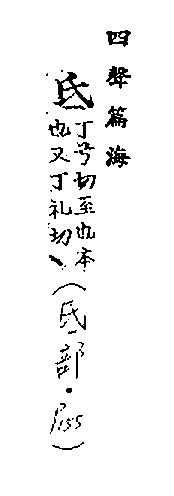 四聲篇海
氐丁兮切至也本
也又丁礼切、(氐部·P.155)